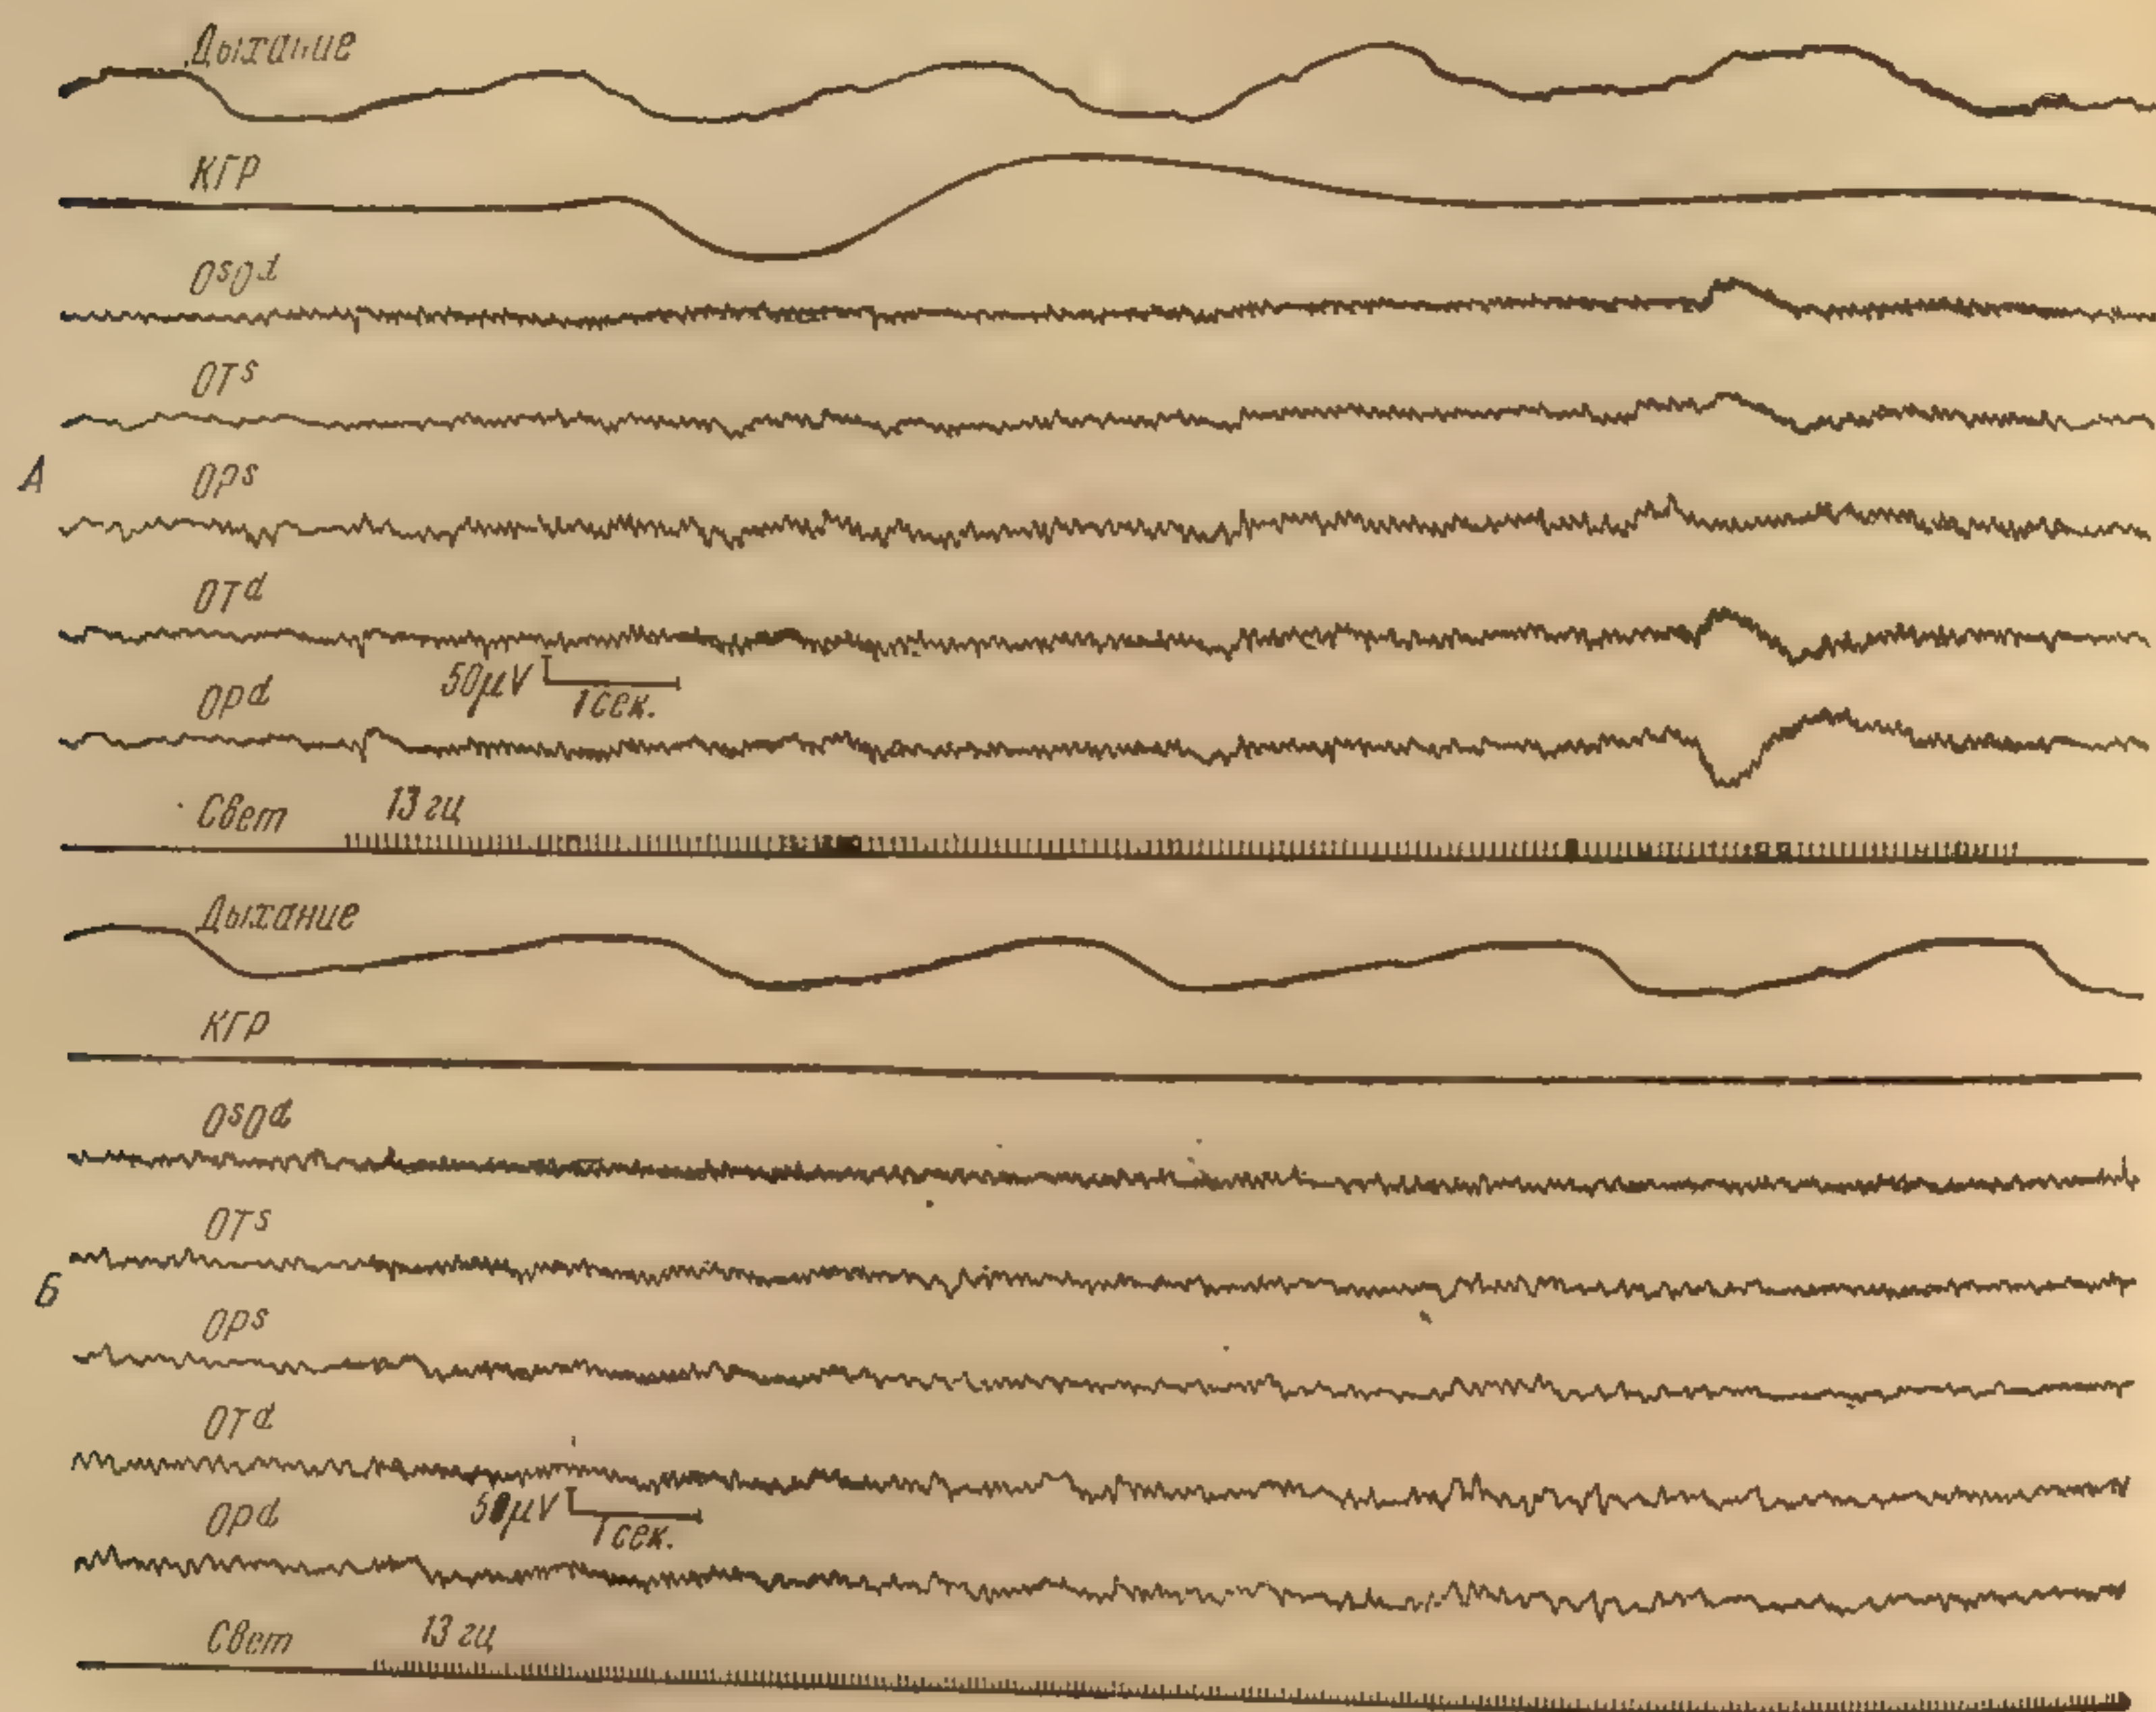 Дыхание
КГР
OsOd
OTs
А
OPs
OTd
50μV
1 сек.
OPd
Свет
13 гц
Дыхание
КГР
OsOd
OTs
Б
OPs
OTd
50μV
1 сек.
OPd
Свет
13 гц